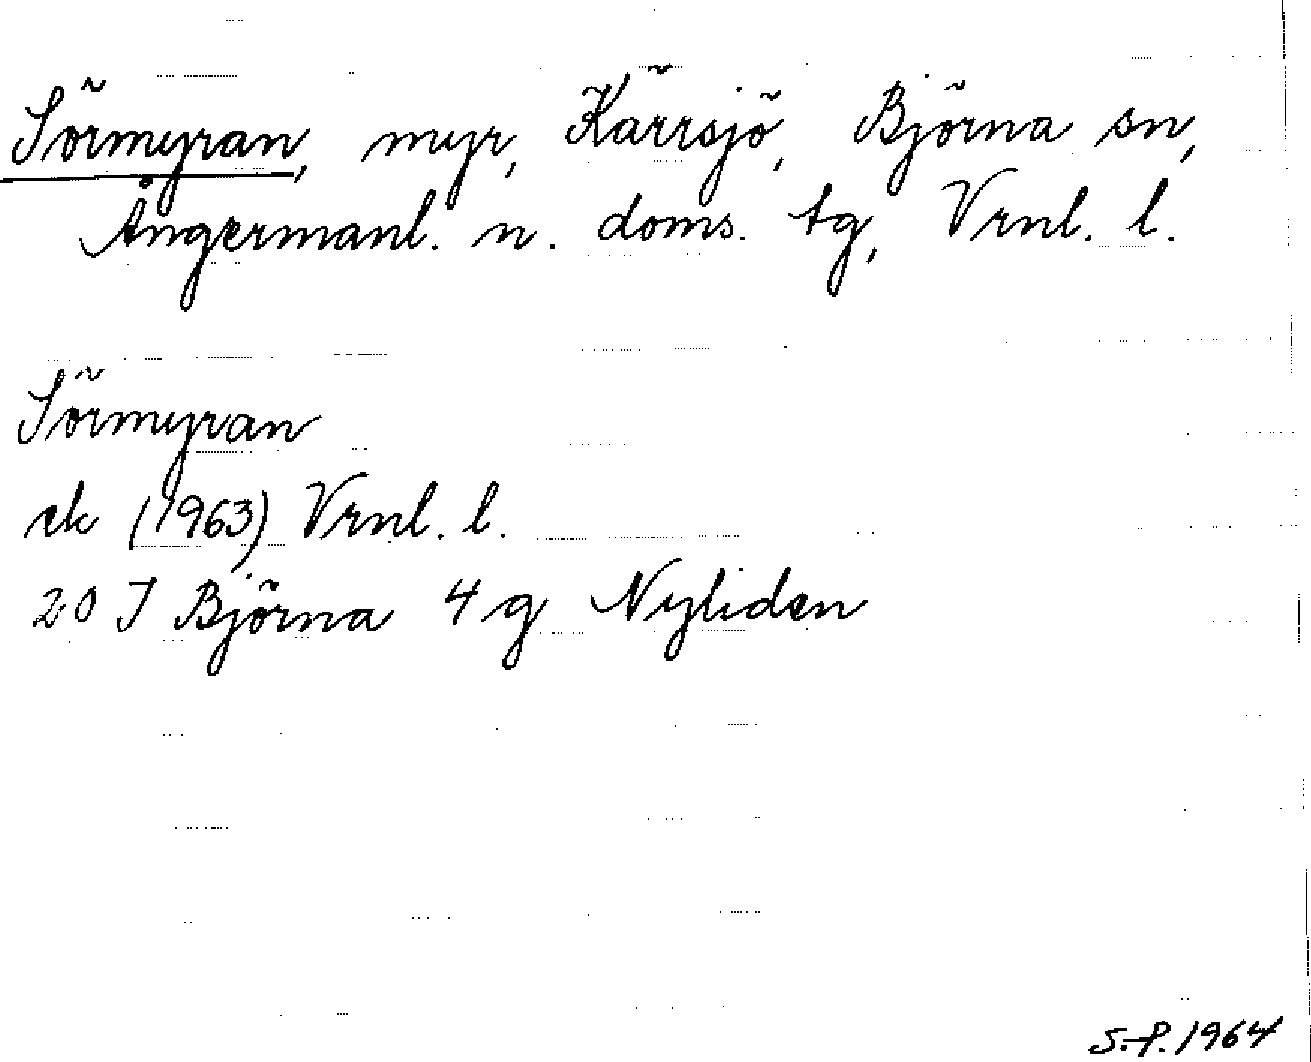 Sörmyran, myr, Kärrsjö, Björna sn,
Ångermanl. n. doms. tg, Vrnl. l.
Sörmyran
ek (1963) Vrnl. l.
20 J Björna 4 g Nyliden
S.-P. 1964